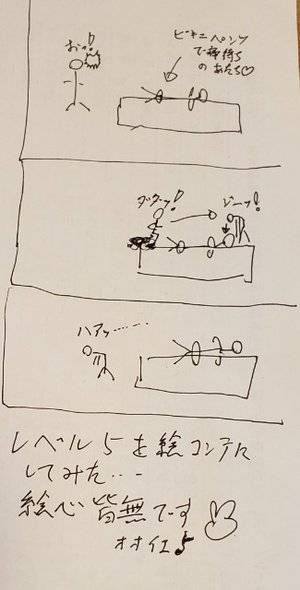 おっ!
ビキニパンツ
で寝待ち
のあたち♡
ダダーッ!
ジーッ!
ハアッ……
レベル5を絵コンテに
してみた…
絵心皆無です
オオイエ♪